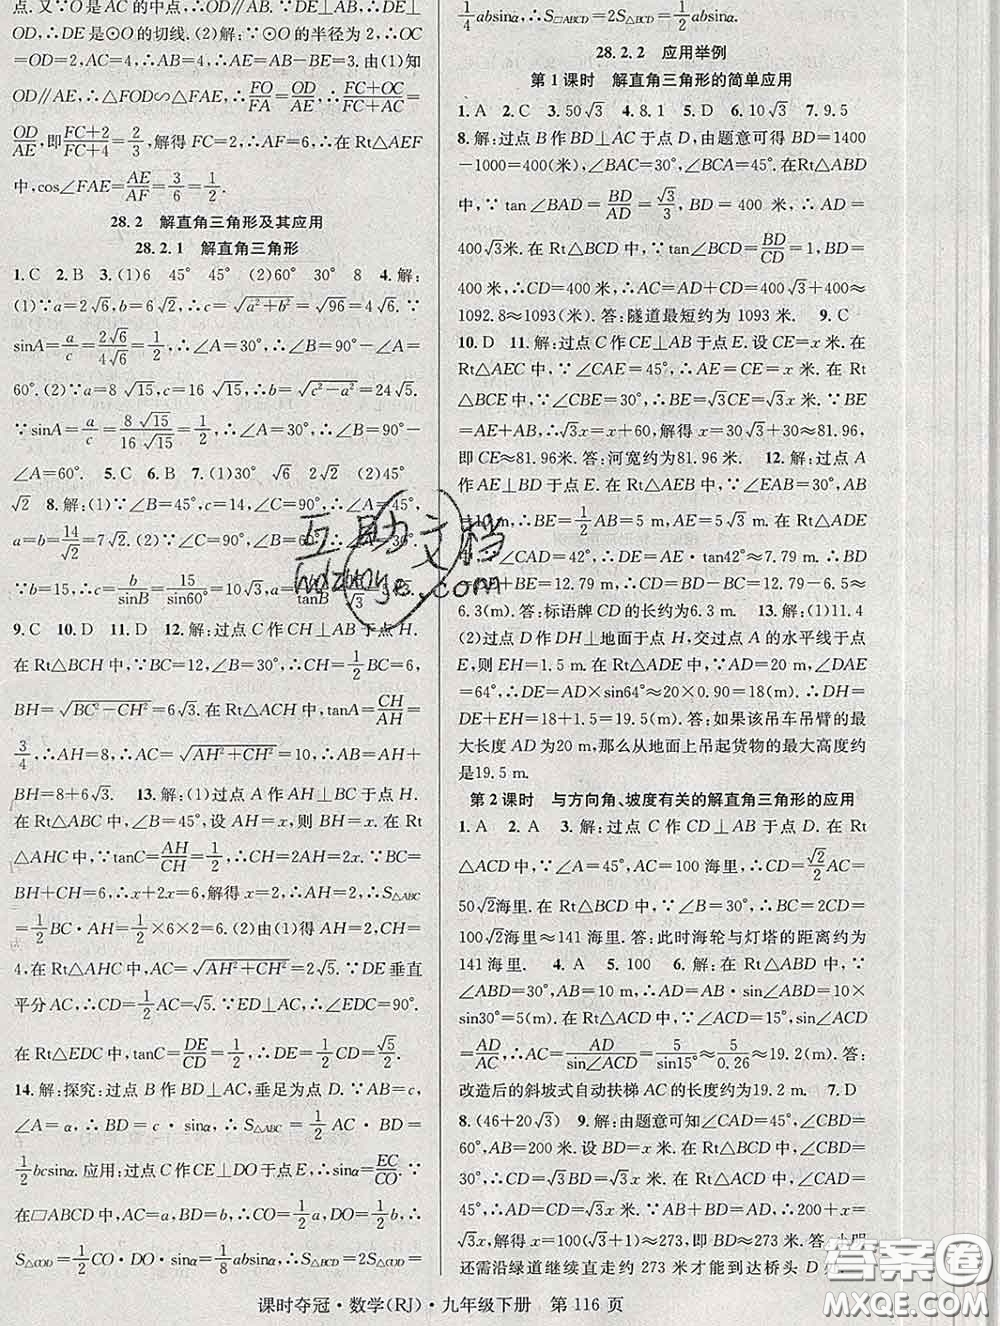 点. 又∵O 是 AC 的中点,∴OD∥AF. ∵DE⊥AF,∴DE⊥
OD,∴DE 是⊙O 的切线. (2)解:∵⊙O 的半径为 2,∴OC
=OD=2,AC=4,∴AB=AC=4,∴AE=AB-BE=3. 由(1)知
OD∥AE,∴△FOD∽△FAE,∴FO/FA=OD/AE,∴(FC+OC)/(FC+AC)=
OD/AE,即(FC+2)/(FC+4)=2/3,解得 FC=2,∴AF=6,∴在 Rt△AEF
中,cos∠FAE=AE/AF=3/6=1/2.
28.2 解直角三角形及其应用
28.2.1 解直角三角形
1. C 2. B 3. (1)6 45° 45° (2)60° 30° 8 4. 解:
(1)∵a=2√6,b=6√2,∴c=√(a²+b²)=√96=4√6. ∵
sinA=a/c=2√6/4√6=1/2,∴∠A=30°,∴∠B=90°-∠A=
60°. (2)∵a=8√15,c=16√15,∴b=√(c²-a²)=24√5.
∵sinA=a/c=8√15/16√15=1/2,∴∠A=30°,∴∠B=90°-
∠A=60°. 5. C 6. B 7. (1)30° √6 2√2 (2)45°
√2 8. 解:(1)∵∠B=45°,c=14,∠C=90°,∴∠A=45°,
a=b=14/√2=7√2. (2)∵∠B=60°,∠C=90°,∴∠A=30°.
∵b=15,∴c=b/sinB=15/sin60°=10√3,a=b/tanB=15/√3=5√3.
9. C 10. D 11. D 12. 解:过点 C 作 CH⊥AB 于点 H.
在 Rt△BCH 中,∵BC=12,∠B=30°,∴CH=1/2BC=6,
BH=√(BC²-CH²)=6√3. 在 Rt△ACH 中,tanA=CH/AH=
3/4,∴AH=8,∴AC=√(AH²+CH²)=10,∴AB=AH+
BH=8+6√3. 13. 解:(1)过点 A 作 AH⊥BC 于点 H.
在 Rt△ABC 中,∵∠B=45°,∴设 AH=x,则 BH=x. 在 Rt
△AHC 中,∵tanC=AH/CH=1/2,∴CH=2AH=2x. ∵BC=
BH+CH=6,∴x+2x=6,解得 x=2,∴AH=2,∴S△ABC
=1/2BC·AH=1/2×6×2=6. (2)由(1)得 AH=2,CH=
4,在 Rt△AHC 中,AC=√(AH²+CH²)=2√5. ∵DE 垂直
平分 AC,∴CD=1/2AC=√5. ∵ED⊥AC,∴∠EDC=90°.
在 Rt△EDC 中,tanC=DE/CD=1/2,∴DE=1/2CD=√5/2.
14. 解:探究:过点 B 作 BD⊥AC,垂足为点 D. ∵AB=c,
∠A=α,∴BD=c·sinα,∴S△ABC=1/2AC·BD=
1/2bcsinα. 应用:过点 C 作 CE⊥DO 于点 E,∴sinα=EC/CO. ∵
在□ABCD 中,AC=a,BD=b,∴CO=1/2a,DO=1/2b,∴
S△COD=1/2CO·DO·sinα=1/8absinα,∴S△BCD=2S△COD=
1/4absinα,∴S□ABCD=2S△BCD=1/2absinα.
28.2.2 应用举例
第 1 课时 解直角三角形的简单应用
1. A 2. C 3. 50√3 4. 8.1 5. D 6. 10√3 7. 9.5
8. 解:过点 B 作 BD⊥AC 于点 D,由题意可得 BD=1400
-1000=400(米),∠BAC=30°,∠BCA=45°. 在 Rt△ABD
中,∵tan∠BAD=BD/AD=√3/3,BD=400 米,∴AD=
400√3米. 在 Rt△BCD 中,∵tan∠BCD=BD/CD=1,∴CD=
400 米,∴AC=AD+CD=400√3+400≈
1092.8≈1093(米). 答:隧道最短约为 1093 米. 9. C
10. D 11. 解:过点 C 作 CE⊥AB 于点 E. 设 CE=x 米. 在
Rt△AEC 中,∵∠CAE=45°,∴AE=CE=x 米. 在 Rt△
BCE 中,∵∠CBE=30°,∴BE=√3CE=√3x 米. ∵BE
=AE+AB,∴√3x=x+60,解得 x=30√3+30≈81.96,
即 CE≈81.96 米. 答:河宽约为 81.96 米. 12. 解:过点
A 作 AE⊥BD 于点 E. 在 Rt△AEB 中,∵∠EAB=30°,AB
=10 m,∴BE=1/2AB=5 m,AE=5√3 m. 在 Rt△ADE
中,∠CAD=42°,∴DE=AE·tan42°≈7.79 m,∴BD
=DE+BE=12.79 m,∴CD=BD-BC=12.79-6.5≈
6.3(m). 答:标语牌 CD 的长约为 6.3 m. 13. 解:(1)11.4
(2)过点 D 作 DH⊥地面于点 H,交过点 A 的水平线于点
E,则 EH=1.5 m. 在 Rt△ADE 中,AD=20 m,∠DAE
=64°,∴DE=AD×sin64°≈20×0.90≈18(m),∴DH=
DE+EH=18+1.5=19.5(m). 答:如果该吊车吊臂的最
大长度 AD 为 20 m,那么从地面上吊起货物的最大高度约
是19.5 m.
第 2 课时 与方向角、坡度有关的解直角三角形的应用
1. A 2. A 3. 解:过点 C 作 CD⊥AB 于点 D. 在 Rt△
ACD 中,∵∠A=45°,AC=100 海里,∴CD=√2/2AC=
50√2海里. 在 Rt△BCD 中,∵∠B=30°,∴BC=2CD=
100√2海里≈141 海里. 答:此时海轮与灯塔的距离约为
141 海里. 4. A 5. 100 6. 解:在 Rt△ABD 中,∵
∠ABD=30°,AB=10 m,∴AD=ABsin∠ABD=10×
sin30°=5(m). 在 Rt△ACD 中,∵∠ACD=15°,sin∠ACD
=AD/AC,∴AC=AD/sin∠ACD=5/sin15°≈5/0.26≈19.2(m). 答:
改造后的斜坡式自动扶梯 AC 的长度约为19.2 m. 7. D
8. (46+20√3) 9. 解:由题意可知∠CAD=45°,∠CBD=
60°,AB=200 米. 设 BD=x 米. ∵在 Rt△BCD 中,∠CBD=
60°,∴CD=√3BD=√3x 米. ∵在 Rt△ACD 中,∠CAD
=45°,∴AD=CD=√3x 米. ∵AB+BD=AD,∴200+x=
√3x,解得 x=100(√3+1)≈273,即 BD≈273 米. 答:小明
还需沿绿道继续直走约 273 米才能到达桥头 D 处.
课时夺冠·数学(RJ)·九年级下册 第 116 页
互助文档
hdzuoye.com
答案圈
MXQE.COM